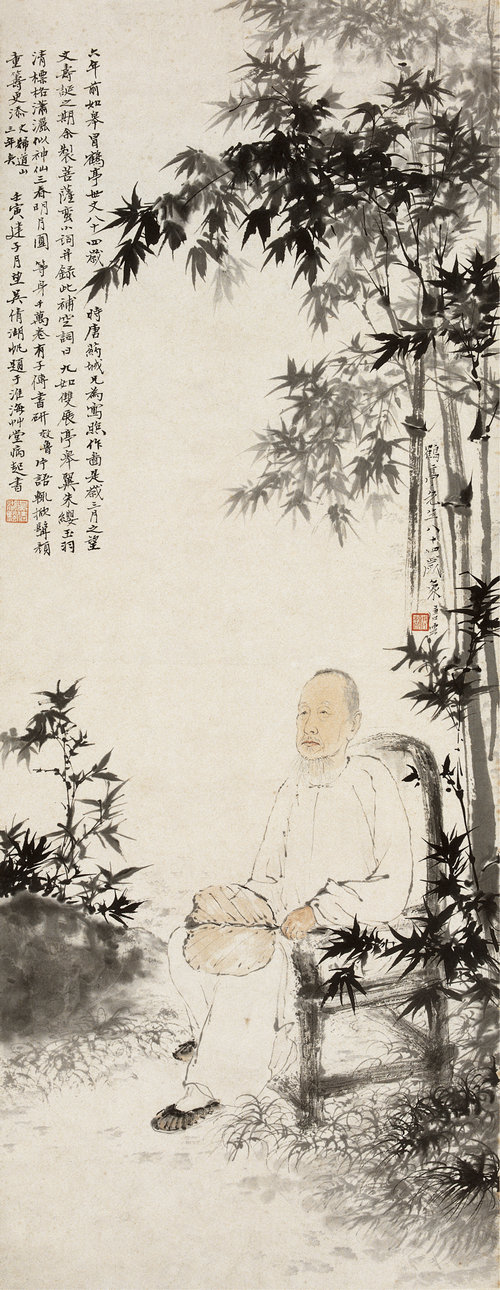 鶴亭老先生八十四歲象
六年前如皋冒鶴亭世丈八十四歲 時唐葯城兄為寫照作圖是歲三月之望
丈壽誕之期余製菩薩蠻小詞并錄此補空詞曰九如雙展亭皋翼朱纓玉羽
清標格瀟灑似神仙三春明月圓 等身千萬卷有子傳書研 片語輒掀髯
重籌更添 丈歸道山三年矣 壬寅建子月望吳倩湖帆題于淮海艸堂病起書